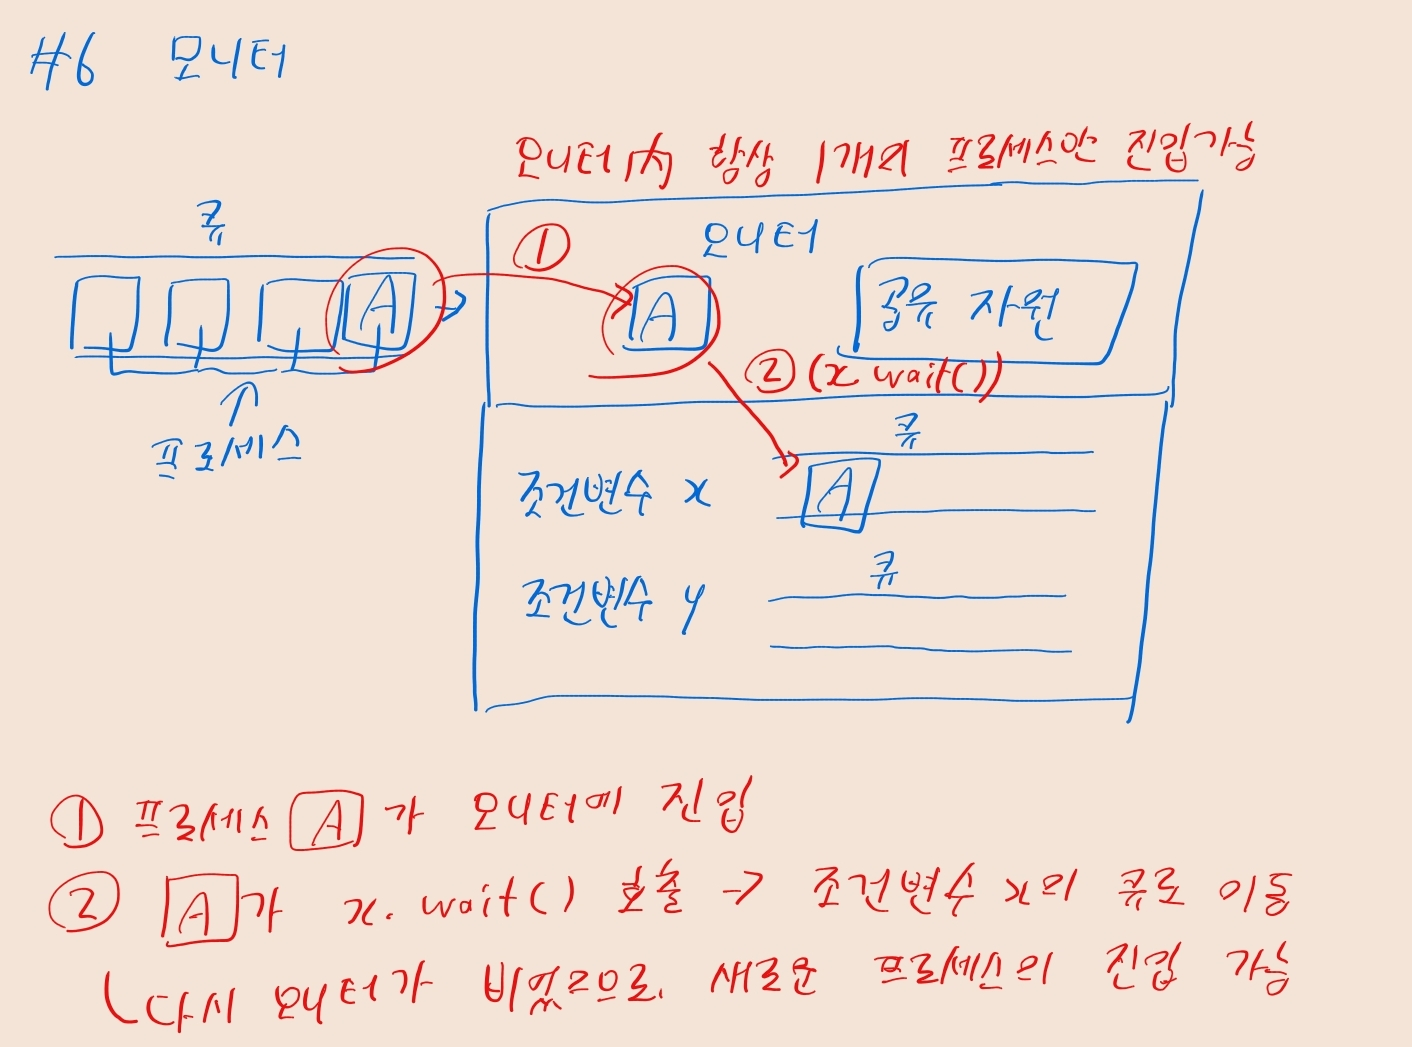 #6 모니터
모니터 內 항상 1개의 프로세스만 진입가능
큐
A
프로세스
①
모니터
A
공유 자원
② (x wait())
조건변수 x
큐
A
조건변수 y
큐
① 프로세스 A 가 모니터에 진입
② A가 x. wait() 호출 → 조건변수 x의 큐로 이동
다시 모니터가 비었으므로, 새로운 프로세스의 진입 가능